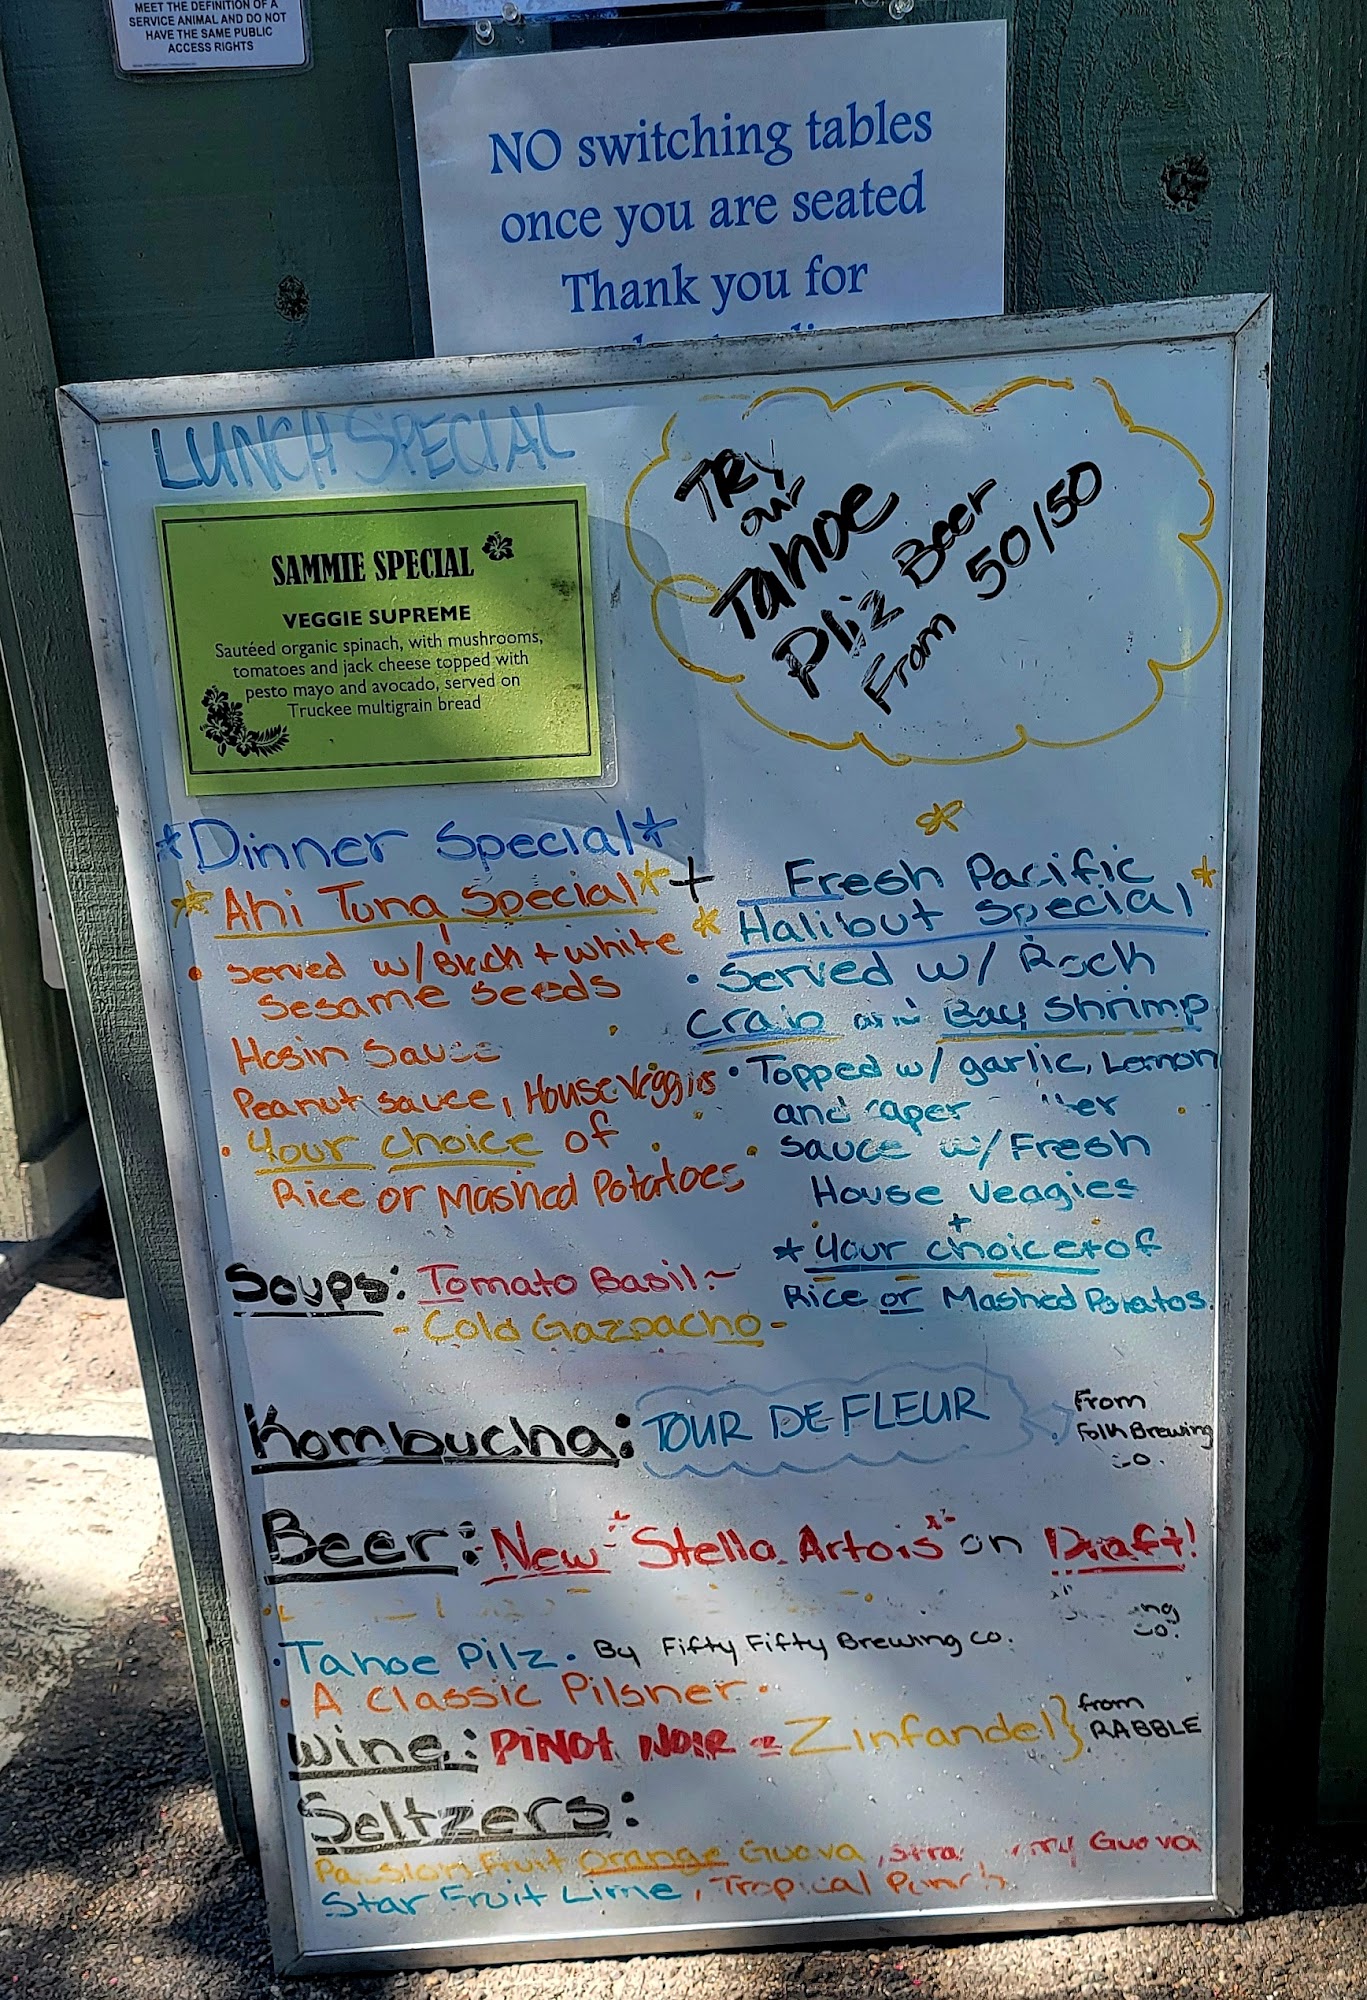 MEET THE DEFINITION OF A
SERVICE ANIMAL AND DO NOT
HAVE THE SAME PUBLIC
ACCESS RIGHTS
NO switching tables
once you are seated
Thank you for
LUNCH SPECIAL
SAMMIE SPECIAL
VEGGIE SUPREME
Sautéed organic spinach, with mushrooms,
tomatoes and jack cheese topped with
pesto mayo and avocado, served on
Truckee multigrain bread
TRY
our
Tahoe
Pliz Beer
From 50/50
*Dinner Special*
*Ahi Tuna Special* +
• Served w/ Blck + white
Sesame Seeds
Hosin Sauce
Peanut sauce, House Veggies
• Your choice of
Rice or Mashed Potatoes
* Fresh Pacific *
* Halibut Special
• Served w/ Rock
Crab and Bay Shrimp
• Topped w/ garlic, Lemon
and caper
sauce w/ Fresh
House Veggies
+
* Your choice of
Rice or Mashed Potatos.
Soups: Tomato Basil ~
- Cold Gazpacho -
Kombucha: TOUR DE FLEUR
From
Folk Brewing
co.
Beer: New "Stella Artois" on Draft!
ng
co.
• Tahoe Pilz. By Fifty Fifty Brewing Co.
• A Classic Pilsner •
Wine: PINOT NOIR Zinfandel } from
RABBLE
Seltzers:
Passion Fruit Orange Guava, Guava
Star Fruit Lime, Tropical Punch